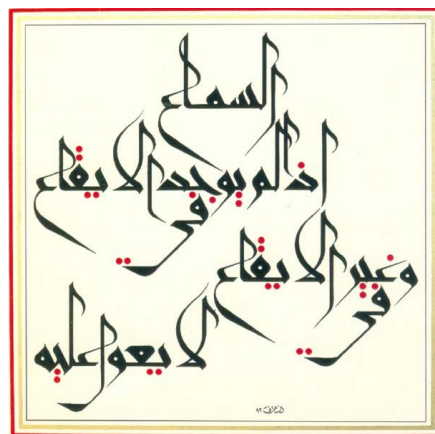 السماع
اذا لم يوجد في الايقاع
و في غير الايقاع
لا يعول عليه